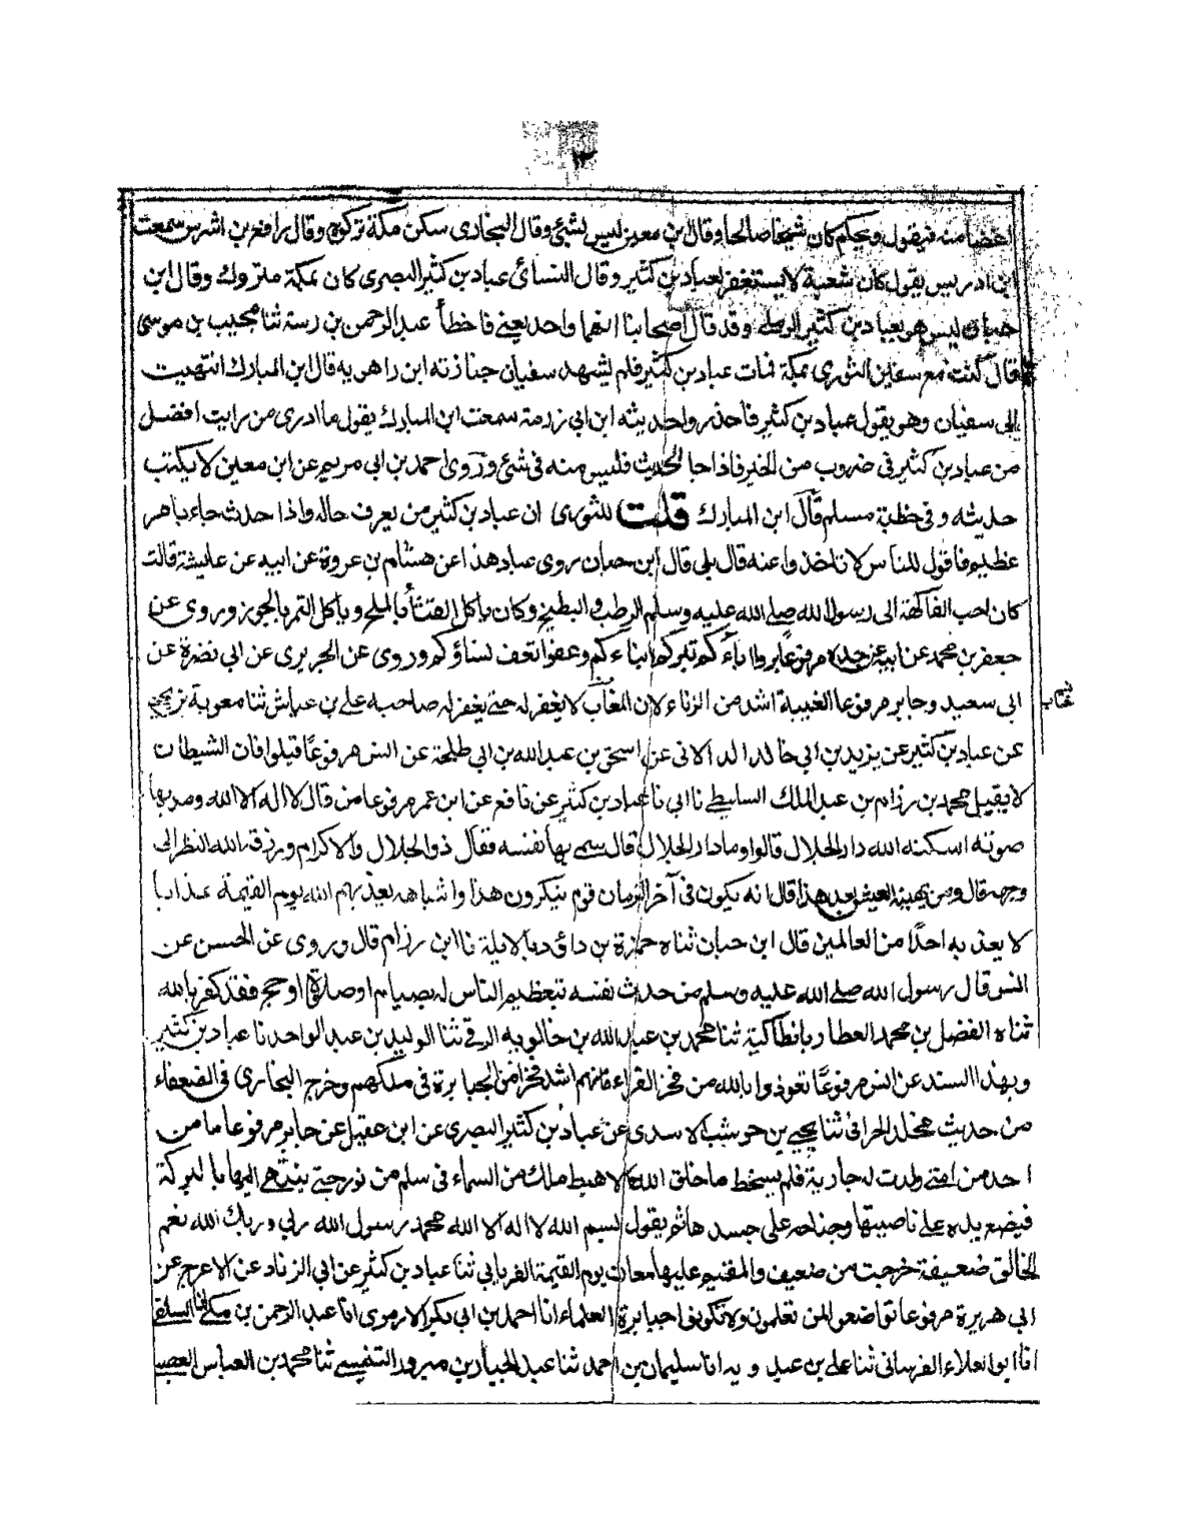 ١٣
اغضا منه فيقول ويحكم كان شيخا صالحا وقال ابن معين ليس بشئ وقال البخاري سكن مكة تركوه وقال رافع بن اشرس سمعت
ابن ادريس يقول كان شعبة لا يستغفر لعباد بن كثير وقال النسائى عباد بن كثير البصرى كان بمكة متروك وقال ابن
حبان ليس هو بعباد بن كثير الرملى وقد قال اصحابنا انهما واحد يعنى فاخطأ عبد الرحمن بن رستة ثنا مجيب بن موسى
قال كنت مع سفين الثورى بمكة فمات عباد بن كثير فلم يشهد سفيان جنازته ابن راهويه قال ابن المبارك انتهيت
إلى سفيان وهو يقول عباد بن كثير فاحذروا حديثه ابن ابى رزمة سمعت ابن المبارك يقول ما ادرى من رايت افضل
من عباد بن كثير فى ضروب من الخير فاذا جا الحديث فليس منه فى شئ وروى احمد بن ابى مريم عن ابن معين لا يكتب
حديثه وفى خطبة مسلم قال ابن المبارك قلت للثورى ان عباد بن كثير من يعرف حاله واذا حدث جاء بامر
عظيم فاقول للناس لا تاخذوا عنه قال بلى قال ابن حبان روى عباد هذا عن هشام بن عروة عن ابيه عن عايشة قالت
كان احب الفاكهة الى رسول الله صلى الله عليه وسلم الرطب والبطيخ وكان ياكل القثأ بالملح وياكل التمر بالجوز وروى عن
جعفر بن محمد عن ابيه عن جده مرفوعا بروا اباءكم تبركم ابناءكم وعفوا تعف نساؤكم وروى عن الجريرى عن ابى نضرة عن
ابى سعيد وجابر مرفوعا الغيبة اشد من الزناء لان المغتاب لا يغفر له حتى يغفر له صاحبه على بن عياش ثنا معوية بن يحيى
عن عباد بن كثير عن يزيد بن ابى خالد الدالانى عن اسحق بن عبد الله بن ابى طلحة عن انس مرفوعا قيلوا فان الشيطان
لا يقيل محمد بن رزام بن عبد الملك السليطى نا ابى نا عباد بن كثير عن نافع عن ابن عمر مرفوعا من قال لا اله الا الله ومد بها
صوته اسكنه الله دار الجلال قالوا وما دار الجلال قال سمى بها نفسه فقال ذو الجلال والاكرام ورزقه الله النظر الى
وجهه قال ومن يهنيه العيش بعد هذا قال انه يكون فى آخر الزمان قوم ينكرون هذا واشباهه يعذبهم الله يوم القيمة عذابا
لا يعذبه احدا من العالمين قال ابن حبان ثناه حمزة بن داؤد بالابلة نا ابن رزام قال وروى عن الحسن عن
انس قال رسول الله صلى الله عليه وسلم من حدث نفسه بتعظيم الناس له بصيام او صلاة او حج فقد كفر بالله
ثناه الفضل بن محمد العطار بانطاكية ثنا محمد بن عبد الله بن خالويه الرقى ثنا الوليد بن عبد الواحد نا عباد بن كثير
وبهذا السند عن انس مرفوعا تعوذوا بالله من فخر القراء فانهم اشد فخرا من الجبابرة فى ملكهم وخرج البخارى فى الضعفاء
من حديث مخلد الحرانى ثنا يحيى بن حوشب الاسدى عن عباد بن كثير البصرى عن ابن عقيل عن جابر مرفوعا ما من
احد من امتى ولدت له جارية فلم يسخط ما خلق الله الا هبط ملك من السماء فى سلم من نور حتى ينتهى اليها بالبركة
فيضع يده على ناصيتها وجناحه على جسدها ثم يقول بسم الله لا اله الا الله محمد رسول الله ربى وربك الله نعم
الخالق ضعيفة خرجت من ضعيف والمقيم عليها معان يوم القيمة الفريابى ثنا عباد بن كثير عن ابى الزناد عن الاعرج عن
ابى هريرة مرفوعا تواضعوا لمن تعلمون ولا تكونوا جبابرة العلماء انا احمد بن ابى بكر الارموى انا عبد الرحمن بن مكى انا السلفى
انا ابو العلاء الفرسانى ثنا على بن عبدويه انا سليمان بن احمد ثنا عبد الجبار بن ثنا محمد بن العباس